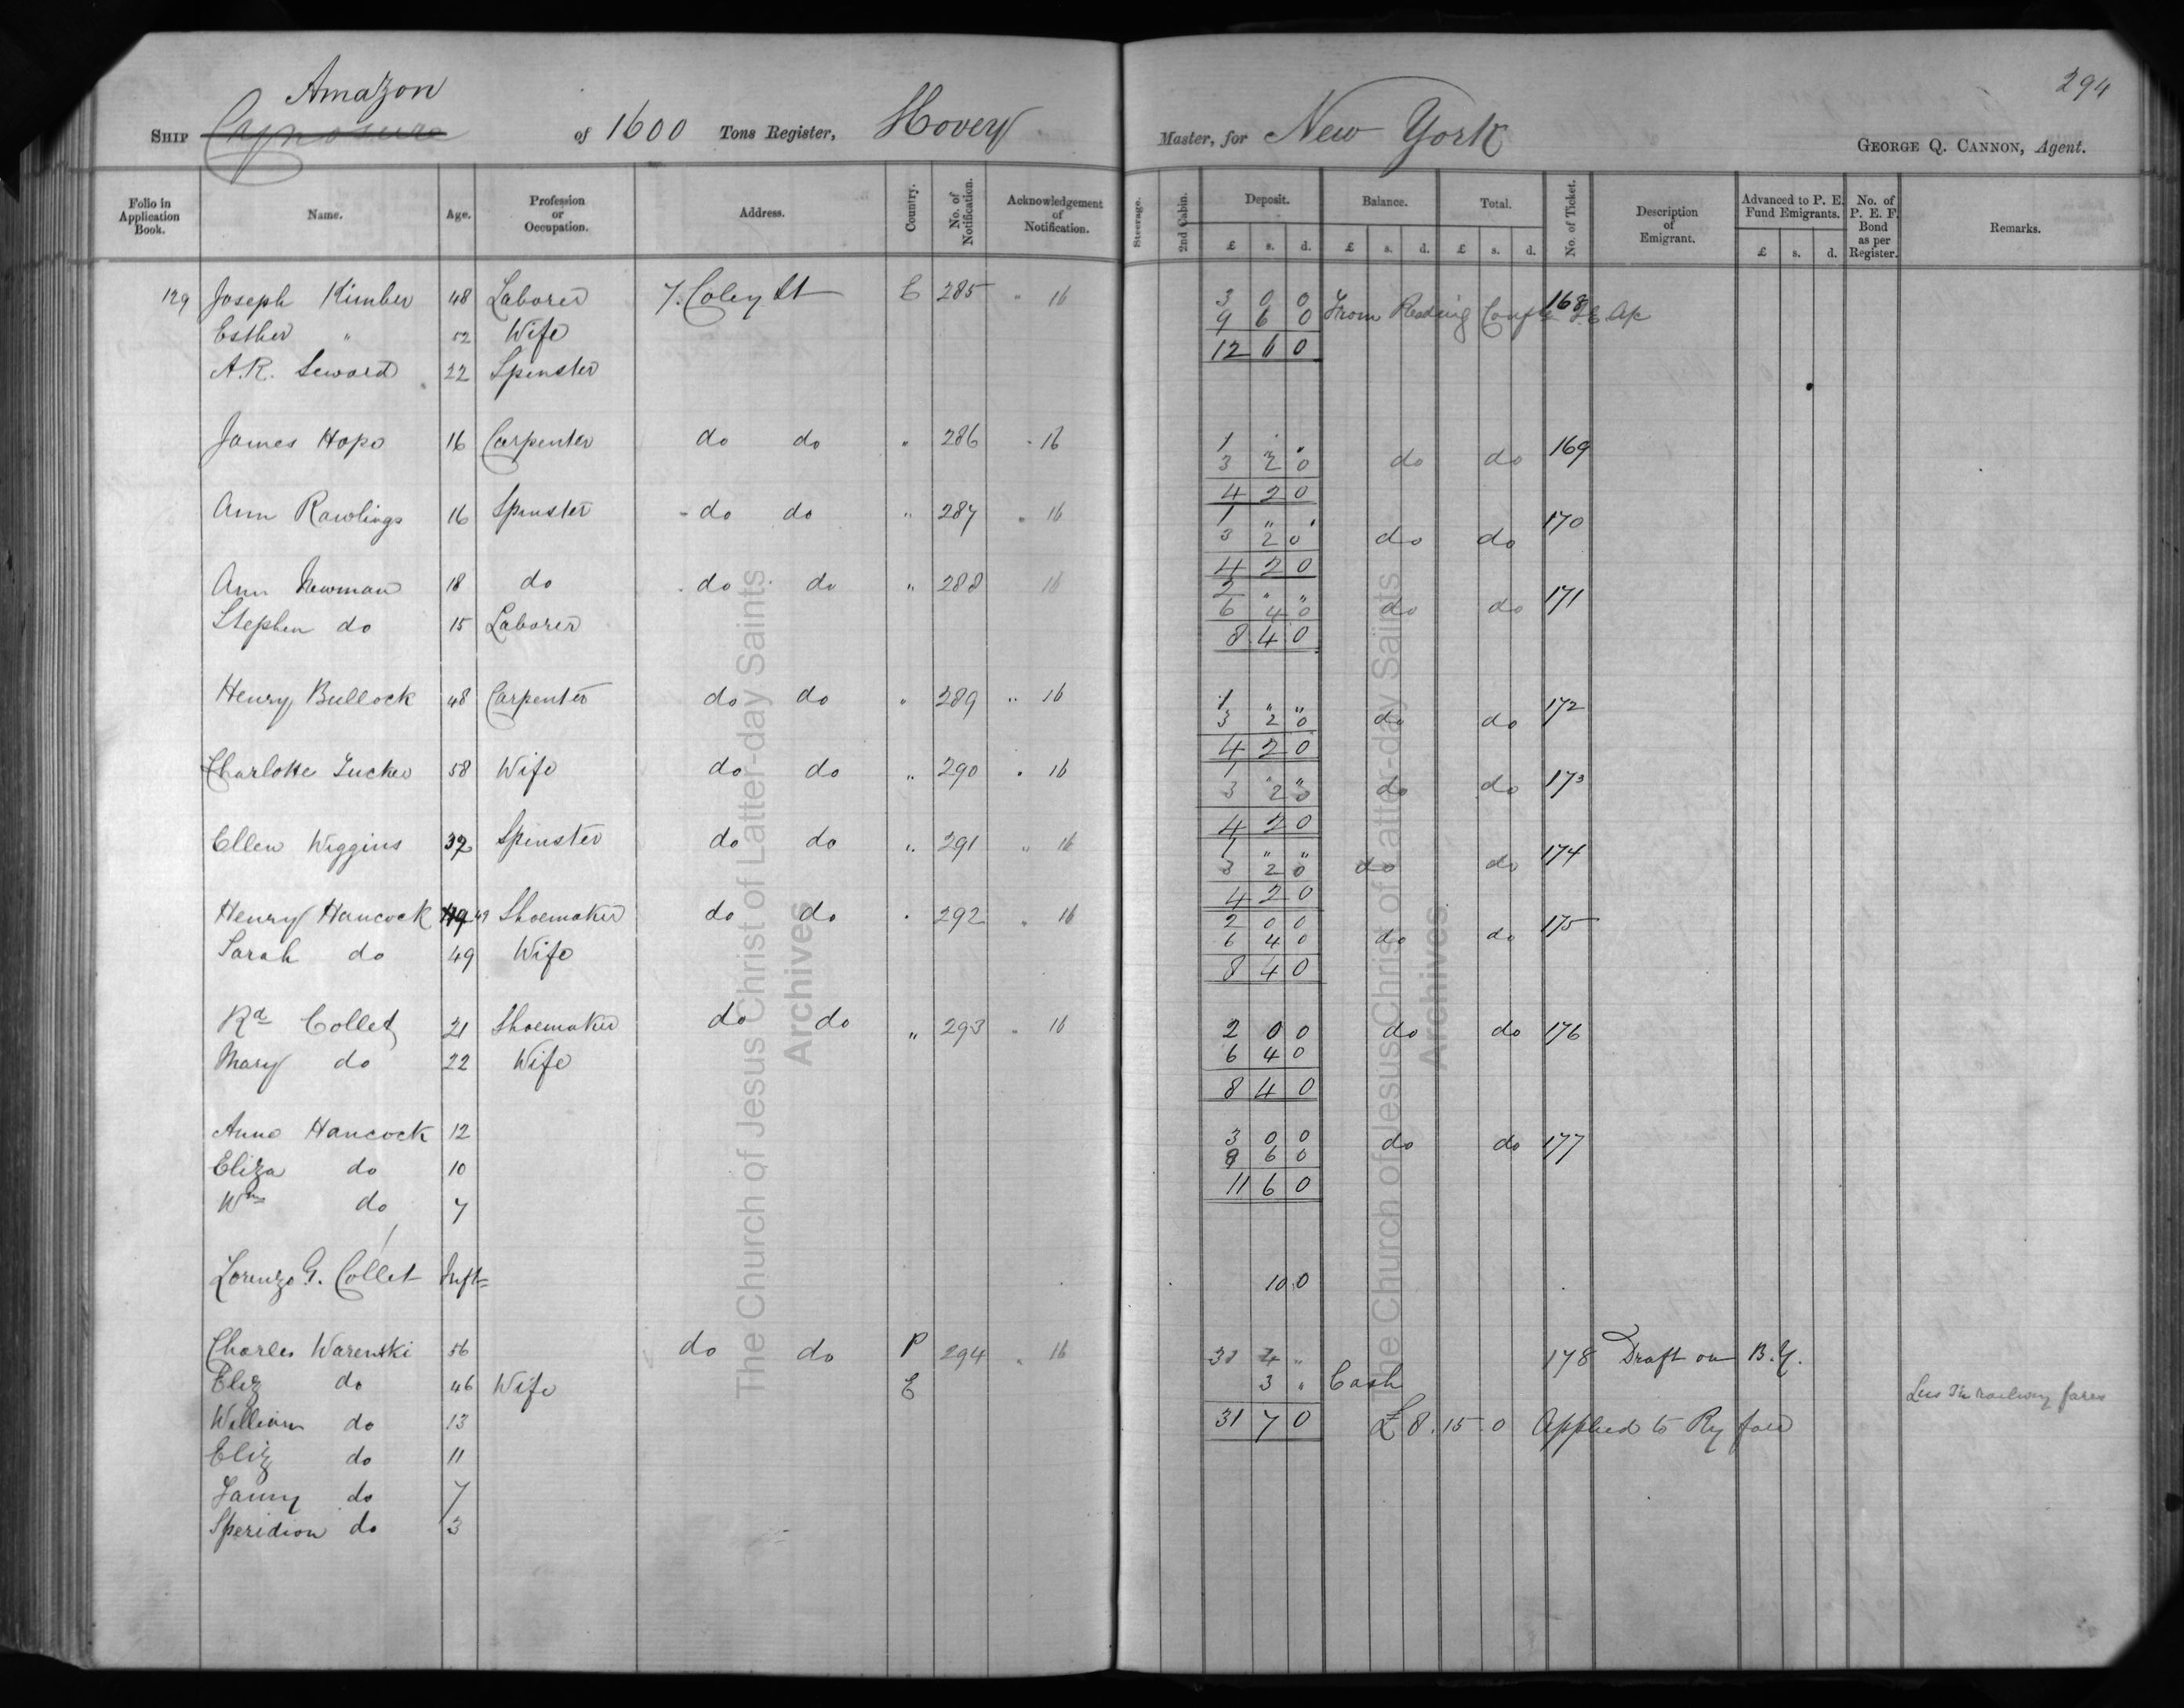 294
Amazon
SHIP Cynosure of 1600 Tons Register, Hovey Master, for New York GEORGE Q. CANNON, Agent.
Folio in Application Book. Name. Age. Profession or Occupation. Address. Country. No. of Notification. Acknowledgement of Notification. Steerage. 2nd Cabin. Deposit. Balance. Total. No. of Ticket. Description of Emigrant. Advanced to P. E. Fund Emigrants. No. of P. E. F. Bond as per Register. Remarks.
£ s. d. £ s. d. £ s. d. £ s. d.
129 Joseph Kimber 48 Laborer 7. Coley St E 285 " 16 3 0 0 168
9 6 0 From Reading Conf
Esther " 52 Wife 12 6 0
A.R. Seward 22 Spinster
James Hope 16 Carpenter do do " 286 " 16 1 " " 169
3 2 0 do do
4 2 0
Ann Rawlings 16 Spinster do do " 287 " 16 1 " " 170
3 2 0 do do
4 2 0
Ann Newman 18 do do do " 288 16 2 " " 171
6 4 0 do do
Stephen do 15 Laborer 8 4 0
Henry Bullock 48 Carpenter do do " 289 " 16 1 " " 172
3 2 0 do do
4 2 0
Charlotte Tucker 58 Wife do do " 290 " 16 1 " " 173
3 2 0 do do
4 2 0
Ellen Wiggins 32 Spinster do do " 291 " 16 1 " " 174
3 2 0 do do
4 2 0
Henry Hancock 49 Shoemaker do do " 292 " 16 2 0 0 175
6 4 0 do do
Sarah do 49 Wife 8 4 0
Rd Collet 21 Shoemaker do do " 293 " 16 2 0 0 do do 176
Mary do 22 Wife 6 4 0
8 4 0
Anne Hancock 12 3 0 0 do do 177
Eliza do 10 8 6 0
Wm do 7 11 6 0
Lorenzo G. Collet Inft 10 0
Charles Warenski 56 do do P 294 " 16 31 4 " 178 Draft on B.Y.
Eliz do 46 Wife E 3 " Cash Less The railway fares
William do 13 31 7 0 £8.15.0 Applied to Ry fare
Eliz do 11
Fanny do 7
Speridion do 3
The Church of Jesus Christ of Latter-day Saints
Archives
The Church of Jesus Christ of Latter-day Saints
Archives